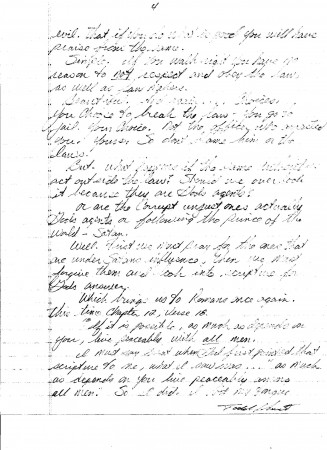 4
evil. That if you do what is good you will have
praise from the same.
Simple, if you walk right you have no
reason to not respect and obey the law
as well as Law
Beautiful. And easy. Choices
You choose to break the law. You go to
jail. Your choice. Not the officer who arrested
you. Yours. So don't blame him or the
laws!
But, what happens if the same authorities
act outside the law? Should we over look
it because they are Gods Agents?
Or are the corrupt unjust ones actually
Gods agents or following the prince of the
world - Satan.
Well first we must pray for the ones that
are under Satans influence, then we must
forgive them and look into scripture for
Gods answer.
Which brings us to Romans once again.
This time Chapter 12, Verse 18.
"If it is possible, as much as depends on
you, live peaceably with all men.
I must say that when first pointed that
scripture to me, what it says was ... as much
as depends on you live peaceably among
all men." So I did. I bit my tongue